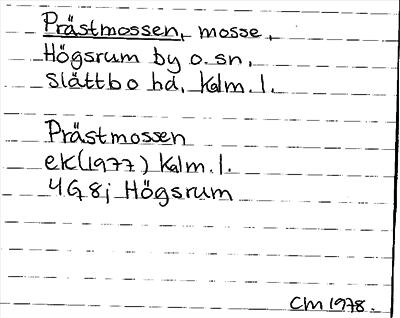 Prästmossen, mosse,
Högsrum by o. sn,
Slättbo hd, Kalm. l.
Prästmossen
ek (1977) Kalm. l.
4G 8j Högsrum
CM 1978.